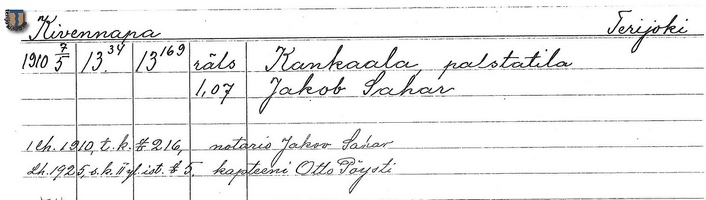 Kivennapa Terijoki
1910 7/5 13.34 13 169 räls Kankaala, palstatila
1,07 Jakob Sahar
I lh. 1910, t.k. § 216, notario Jakov Sahar
Lh. 1925, s.k. II yl. ist. § 5. kapteeni Otto Pöysti